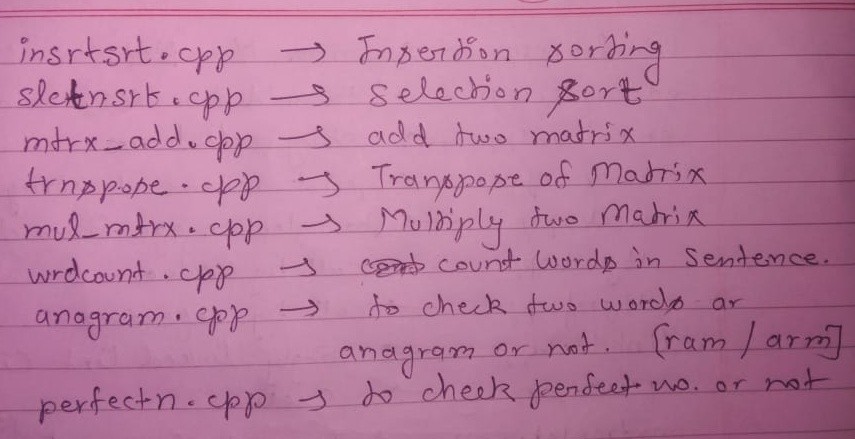 insrtsrt.cpp → Insertion sorting
slctnsrt.cpp → Selection sort
mtrx_add.cpp → add two matrix
trnspose.cpp → Transpose of Matrix
mul_mtrx.cpp → Multiply two Matrix
wrdcount.cpp → count words in Sentence.
anagram.cpp → to check two words ar
anagram or not. [ram / arm]
perfectn.cpp → to check perfect no. or not